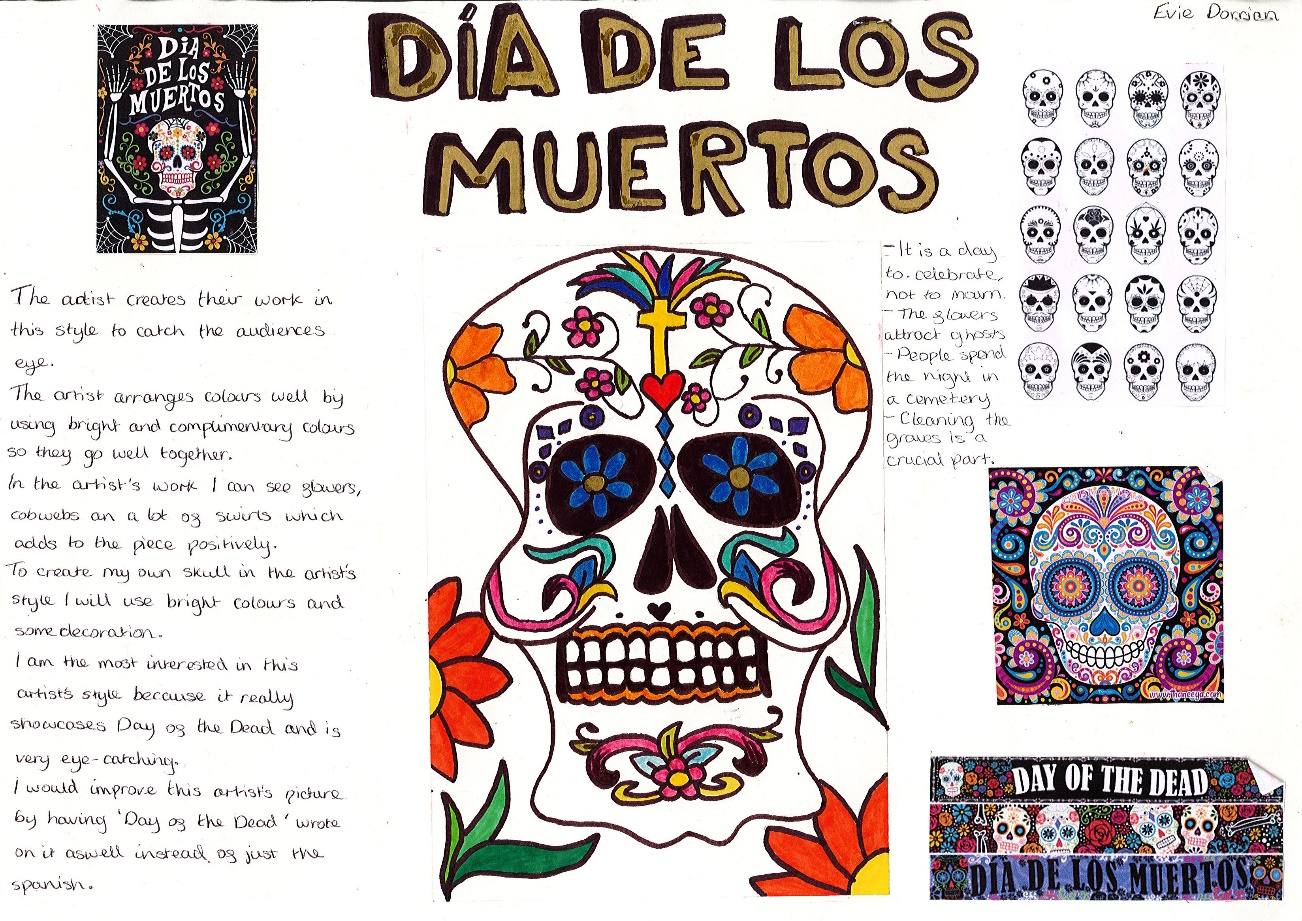 Evie Dornian
DÍA DE LOS
MUERTOS
DíA
DE LOS
MUERTOS
The artist creates their work in
this style to catch the audiences
eye.
The artist arranges colours well by
using bright and complimentary colours
so they go well together.
In the artist's work I can see flowers,
cobwebs an a lot of swirls which
adds to the piece positively.
To create my own skull in the artist's
style I will use bright colours and
some decoration.
I am the most interested in this
artist's style because it really
showcases Day of the Dead and is
very eye-catching.
I would improve this artist's picture
by having 'Day of the Dead' wrote
on it aswell instead of just the
spanish.
- It is a day
to celebrate,
not to mourn.
- The flowers
attract ghosts
- People spend
the night in
a cemetery
- Cleaning the
graves is a
crucial part.
www.thaneeya.com
DAY OF THE DEAD
DÍA DE LOS MUERTOS